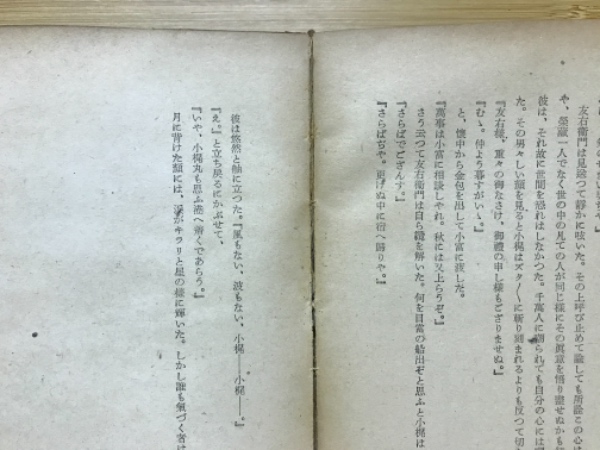 友右衛門は見送つて靜かに呟いた。その上呼び止めて諭しても所詮この心は
や、榮藏一人でなく世の中の見ての人が同じ樣にその眞意を悟り盡せぬかも
彼は、それ故に世間を恐れはしなかつた。千萬人に謗られても自分の心には
た。その男々しい顏を見ると小梶はズタ〳〵に斬り刻まれるよりも反つて切
『友右樣、重々の御なさけ、御禮の申し樣もござりませぬ。』
『むゝ。仲よう暮すがいゝ。』
と、懷中から金包を出して小富に渡した。
『萬事は小富に相談しやれ。秋には又上らうぞ。』
『さらばでござんす。』
さう云つて友右衛門は自ら纜を解いた。何を目當の船出ぞと思ふと小梶は
『さらばぢや。更けぬ中に宿へ歸りや。』
彼は悠然と舳に立つた。『風もない、波もない、小梶――小梶――。』
『え。』と立ち戻るにかぶせて、
『いや、小梶丸も思ふ港へ着くであらう。』
月に背けた顏には、涙がキラリと星の樣に輝いた。しかし誰も氣づく者は